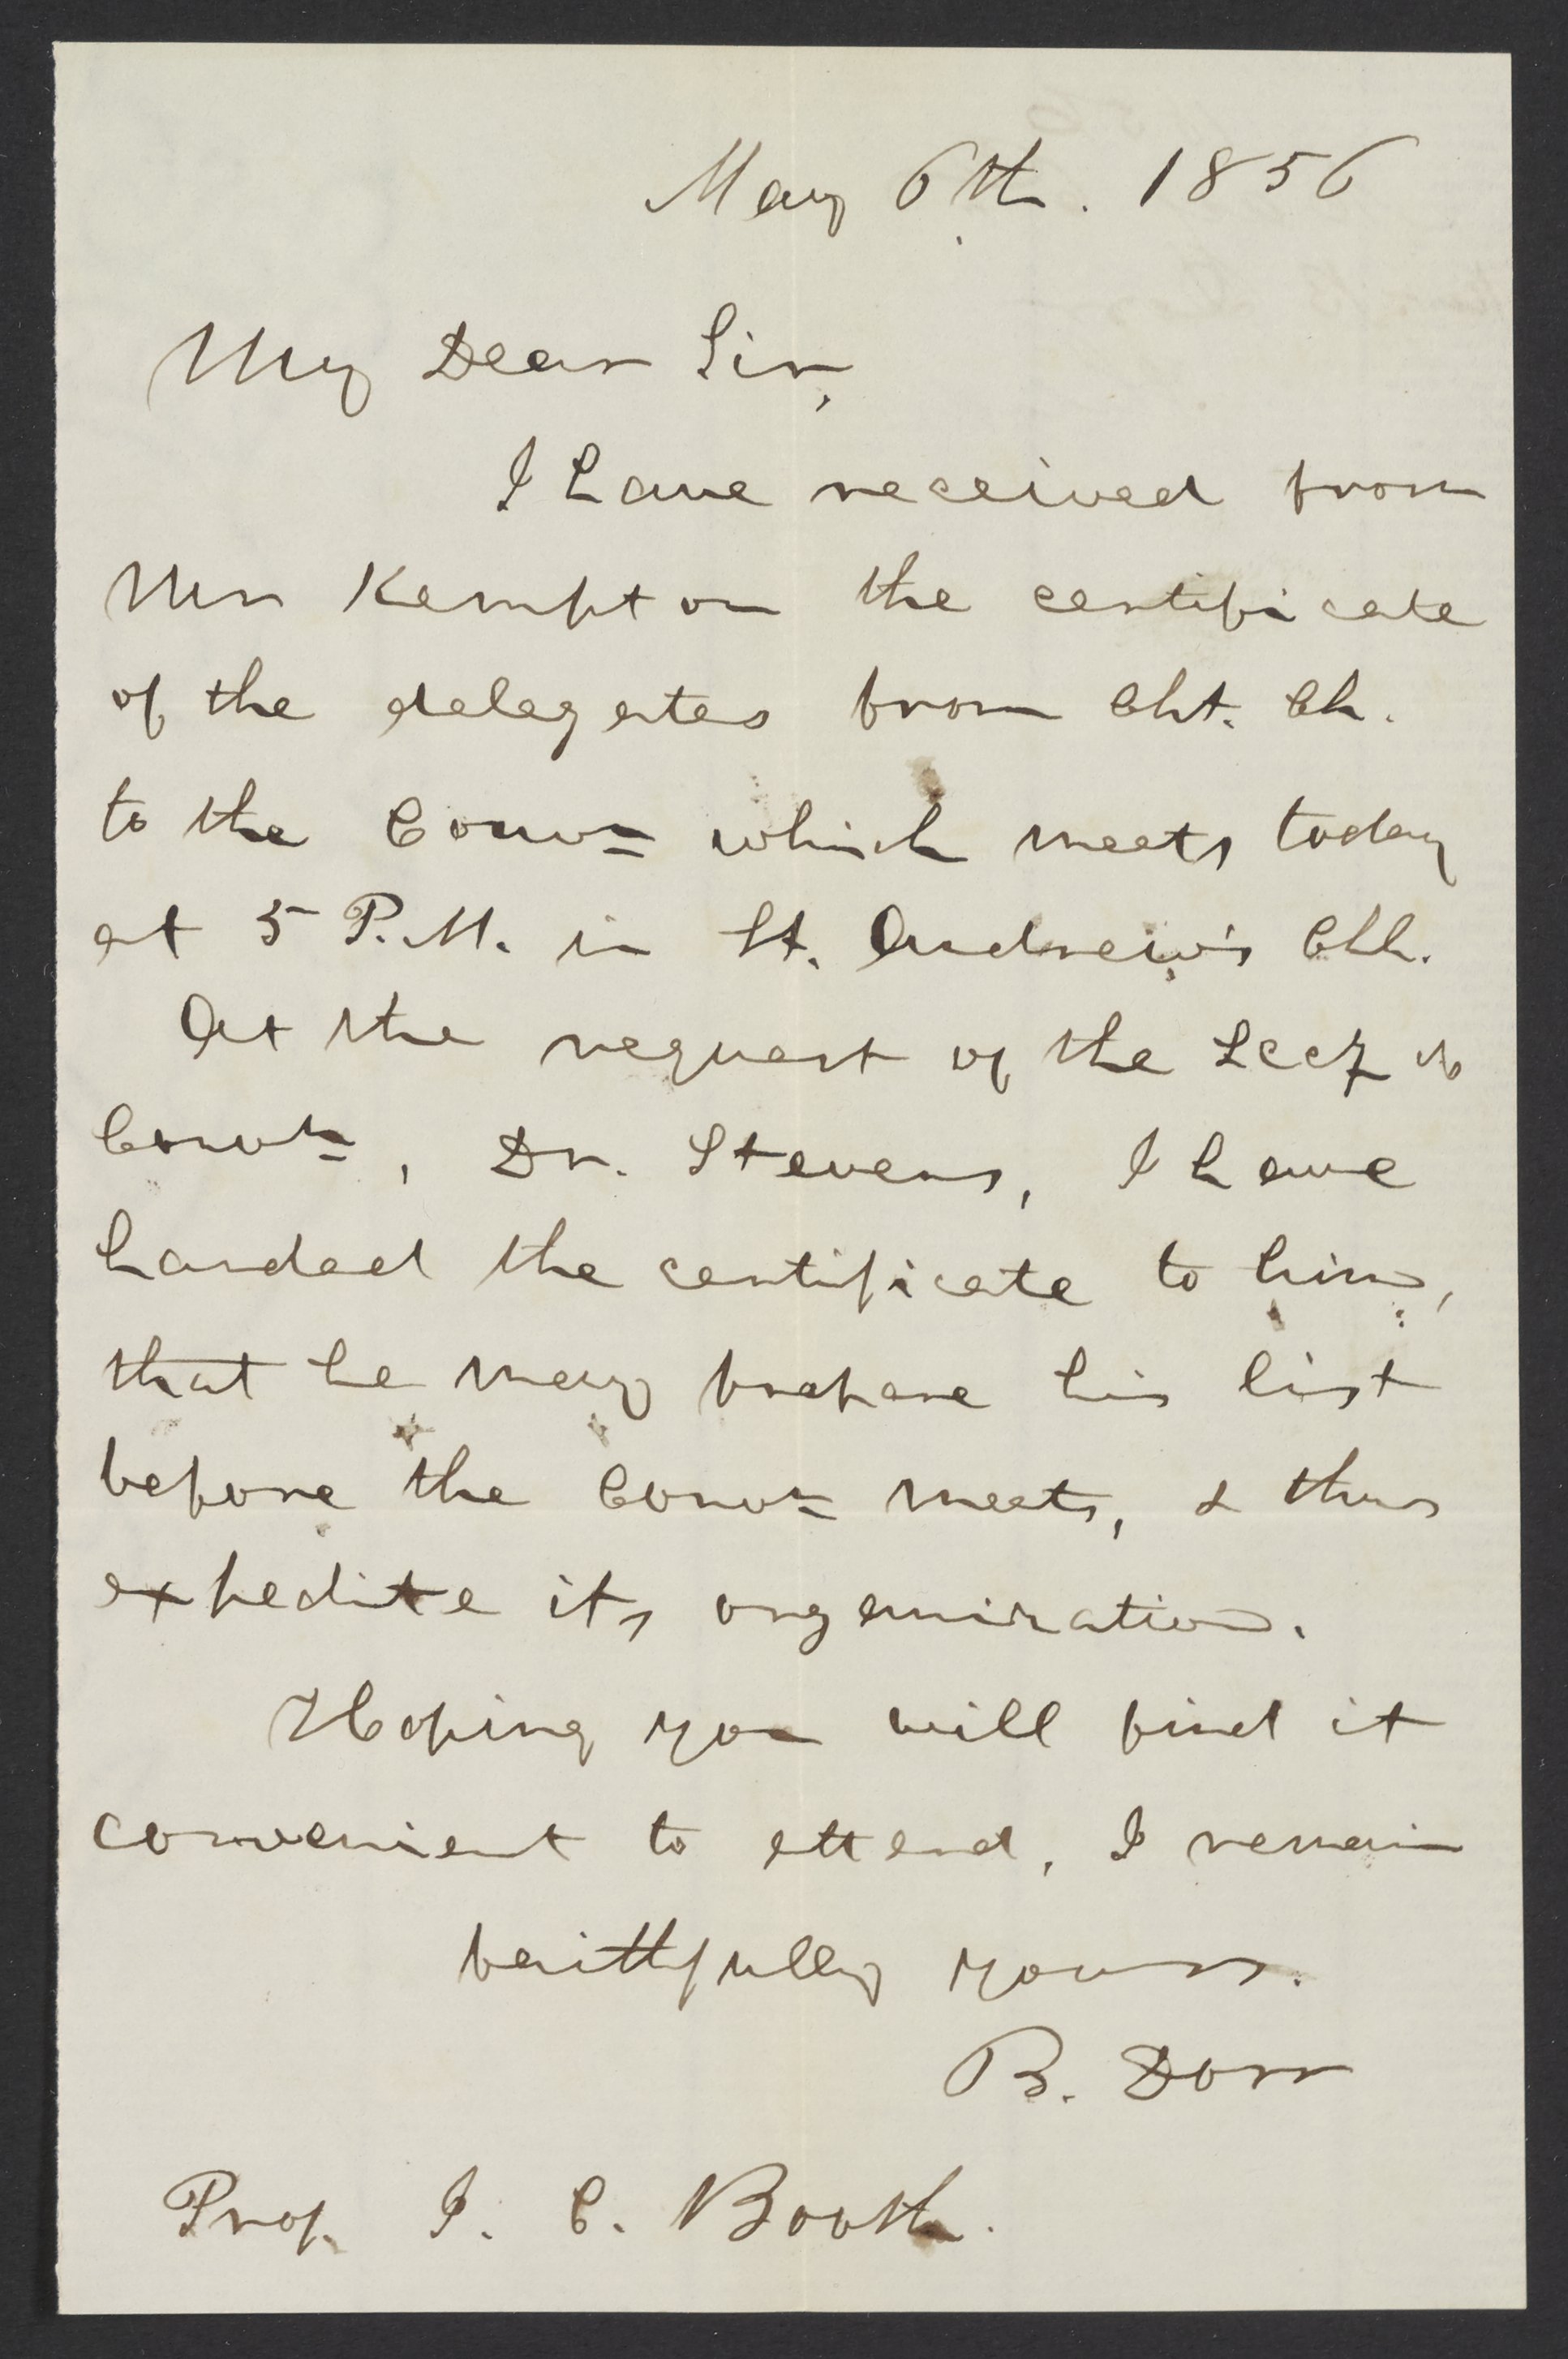 May 6th. 1856
My Dear Sir,
I have received from
Mr Kempton the certificate
of the delegates from Cht. Ch.
to the Convn which meets today
at 5 P.M. in St. Andrew's Chh.
At the request of the Secy of
Convn, Dr. Stevens, I have
handed the certificate to him,
that he may prepare his list
before the Convn meets, & thus
expedite its organization.
Hoping you will find it
convenient to attend, I remain
faithfully yours.
B. Dorr
Prof. J. C. Booth.